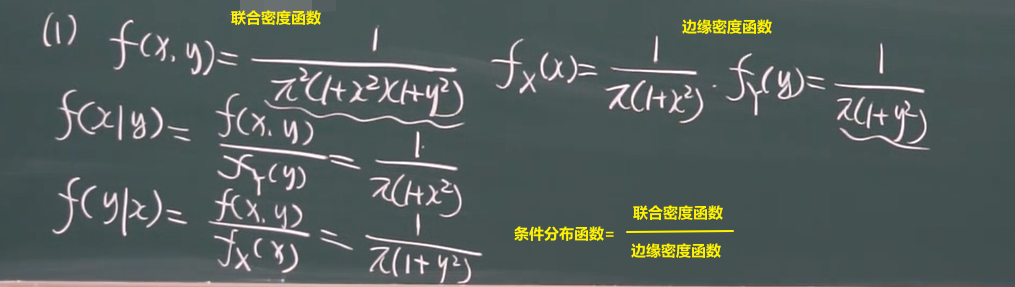 联合密度函数
边缘密度函数
(1) f(x,y)= 1/π²(1+x²)(1+y²) f_X(x)= 1/π(1+x²) · f_Y(y)= 1/π(1+y²)
f(x|y)= f(x,y)/f_Y(y) = 1/π(1+x²)
f(y|x)= f(x,y)/f_X(x) = 1/π(1+y²)
条件分布函数= 联合密度函数/边缘密度函数